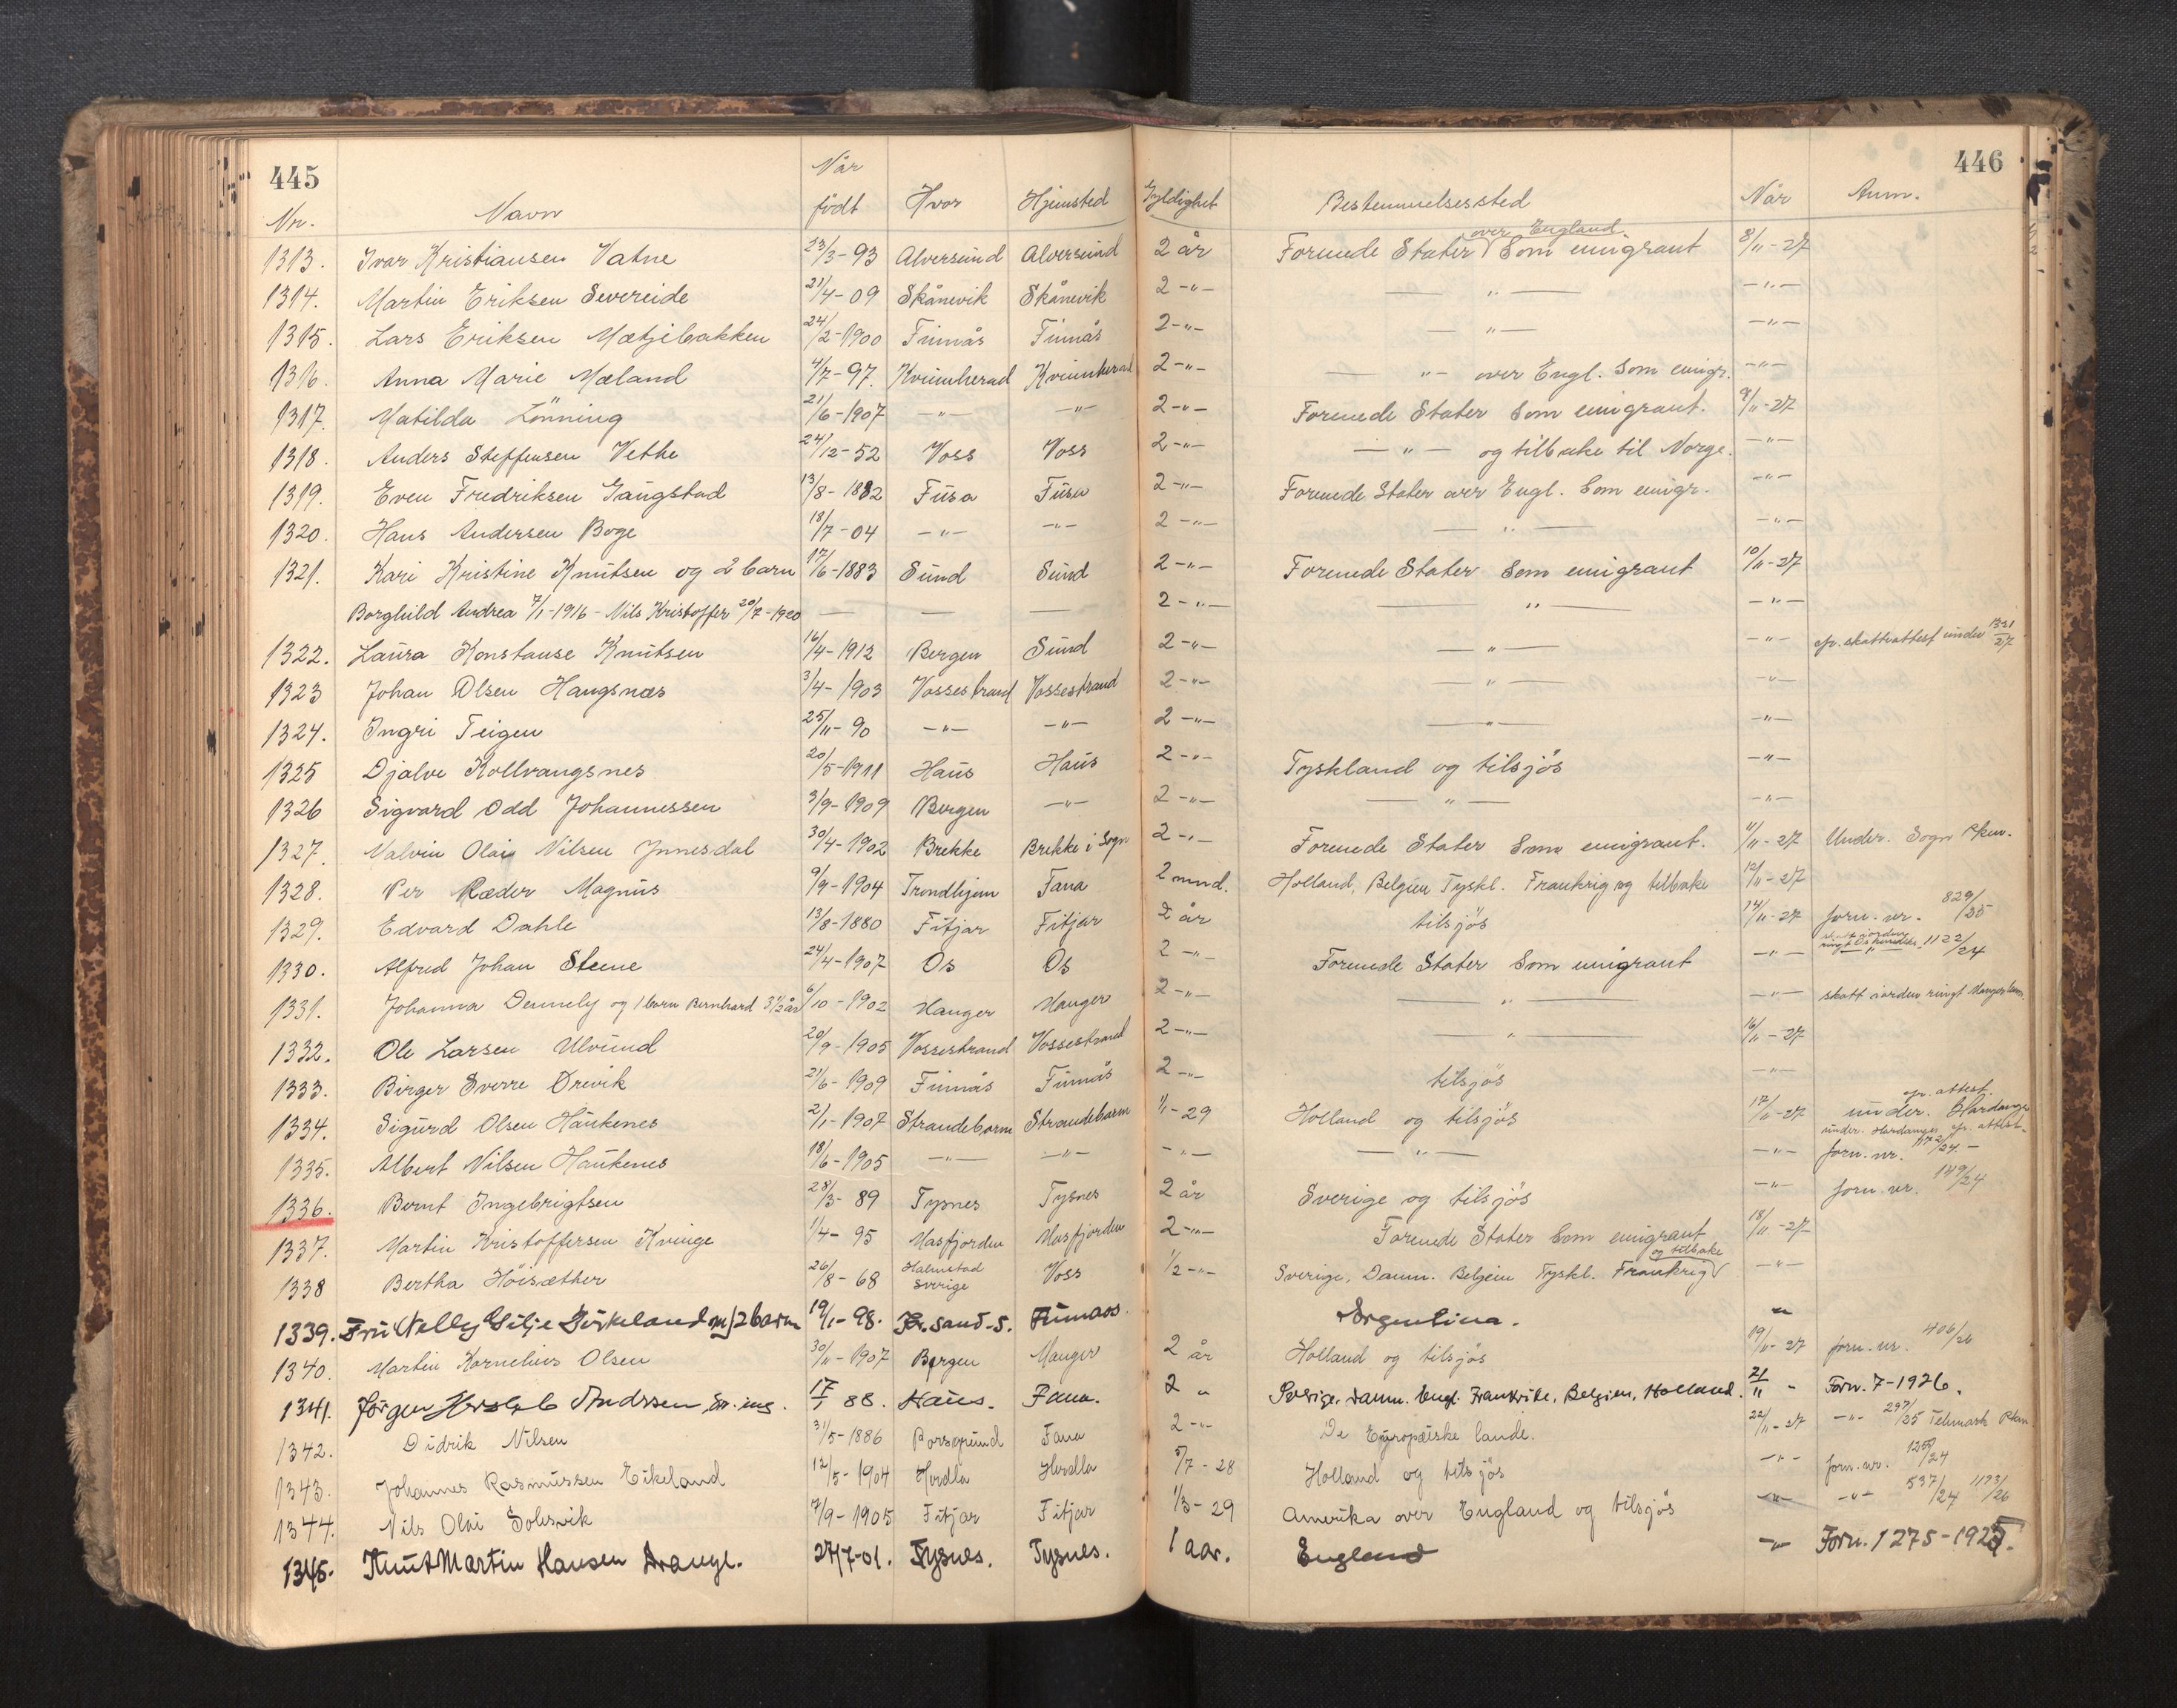 445
446
Nr. Navn Når födt Hvor Hjemsted Gyldighet Bestemmelsessted Når Anm.
1313. Ivar Kristiansen Vatne 23/3-93 Alversund Alversund 2 år Forenede Stater over England Som emigrant 8/11-27
1314. Martin Eriksen Severeide 21/4-09 Skånevik Skånevik 2 -"- — " — -"-
1315. Lars Eriksen Mætjebakken 24/2-1900 Finnås Finnås 2 -"- — " — -"-
1316. Anna Marie Mæland 4/7-97. Kvinnherad Kvinnherad 2 -"- — " — over Engl. Som emigr. -"-
1317. Matilda Lönning 21/6-1907 -"- -"- 2 -"- Forenede Stater Som emigrant. 9/11-27
1318. Anders Steffensen Vethe 24/12-52 Voss Voss 2 -"- — " — og tilbake til Norge. -"-
1319. Even Fredriksen Gaugstad 13/8-1882 Fusa Fusa 2 -"- Forenede Stater over Engl. Som emigr. -"-
1320. Hans Andersen Boge 18/7-04 -"- -"- 2 -"- — " — -"-
1321. Kari Kristine Knutsen og 2 barn 17/6-1883 Sund Sund 2 -"- Forenede Stater Som emigrant 10/11-27
Borghild Andrea 7/1-1916 - Nils Kristoffer 20/7-1920 — — 2 -"- " — -"-
1322. Laura Konstanse Knutsen 16/4-1912 Bergen Sund 2 -"- — " — -"- cfr. skatteattest under 1321/27
1323 Johan Olsen Haugsnæs 3/4-1903 Vossestrand Vossestrand 2 -"- — " — -"-
1324. Ingri Teigen 25/11-90 -"- -"- 2 -"- — " — -"-
1325 Djalve Kollvangsnes 20/5-1911 Haus Haus 2 -"- Tyskland og tilsjös -"-
1326 Sigvard Odd Johannessen 3/9-1909 Bergen -"- 2 -"- — " — -"-
1327. Malvin Olai Nilsen Ynnesdal 30/4-1902 Brekke Brekke i Sogn 2 -"- Forenede Stater Som emigrant. 11/11-27 Under. Sogn Pkm.
1328. Per Ræder Magnus 9/9-1904 Trondhjem Fana 2 mnd. Holland, Belgien Tyskl. Frankrig og tilbake 12/11-27
1329. Edvard Dahle 13/8-1880 Fitjar Fitjar 2 år tilsjös 14/11-27 forn. nr. 829/25
1330. Alfred Johan Stene 24/4-1907 Os Os 2 -"- Forenede Stater Som emigrant -"- 1122/24
1331. Johanna Dennely og 1 barn Bernhard 3 1/2 år 6/10-1902 Manger Manger 2 -"- — " — -"- skatt iorden ringt Manger
1332. Ole Larsen Ulvund 20/9-1905 Vossestrand Vossestrand 2 -"- — " — 16/11-27
1333. Birger Sverre Drevik 21/6-1909 Finnås Finnås 2 -"- tilsjös -"-
1334. Sigurd Olsen Haukenes 2/1-1907 Strandebarm Strandebarm 1/1-29 Holland og tilsjös 17/11-27 cfr. attest under. Hardanger
1335. Albert Nilsen Haukenes 18/6-1905 -"- -"- -"- — " — -"- under. Hardanger cfr. attest. forn. nr. 1172/24. -
1336. Bernt Ingebrigtsen 28/3-89 Tysnes Tysnes 2 år Sverige og tilsjös -"- forn. nr. 149/24
1337. Martin Kristoffersen Kvinge 1/4-95 Masfjorden Masfjorden 2 -"- Forenede Stater Som emigrant 18/11-27
1338 Bertha Höisæther 26/8-68 Halmstad Sverige Voss 1/2 -"- Sverige, Danm. Belgien Tyskl. Frankrig og tilbake -"-
1339. Fru Nelly Silje Birkeland m/2 barn 19/1-98. Kr.sand-S. Finnaas. Argentina. "
1340. Martin Kornelius Olsen 30/11-1907 Bergen Manger 2 år Holland og tilsjös 19/11-27 forn. nr. 406/26
1341. Jörgen Hersleb Andrssen, 17/1 88. Haus. Fana. 2 " Sverige, Danm. Engl. Frankrike, Belgien, Holland. 21/11 - Forn. 7-1926.
1342. Didrik Nilsen 31/5-1886 Porsgrund Fana 2 -"- De Europæiske lande. 22/11-27 -"- 297/25 Telemark Pkm
1343. Johannes Rasmussen Eikeland 12/5-1904 Herdla Herdla 5/7-28 Holland og tilsjös -"- forn. nr. 1259/24
1344. Nils Olai Solesvik 7/9-1905 Fitjar Fitjar 1/3-29 Amerika over England og tilsjös -"- -"- 537/24 1193/26
1345. Knut Martin Hansen Drange. 27/7-01. Tysnes. Tysnes. 1 aar. England -"- Forn. 1275-1925.